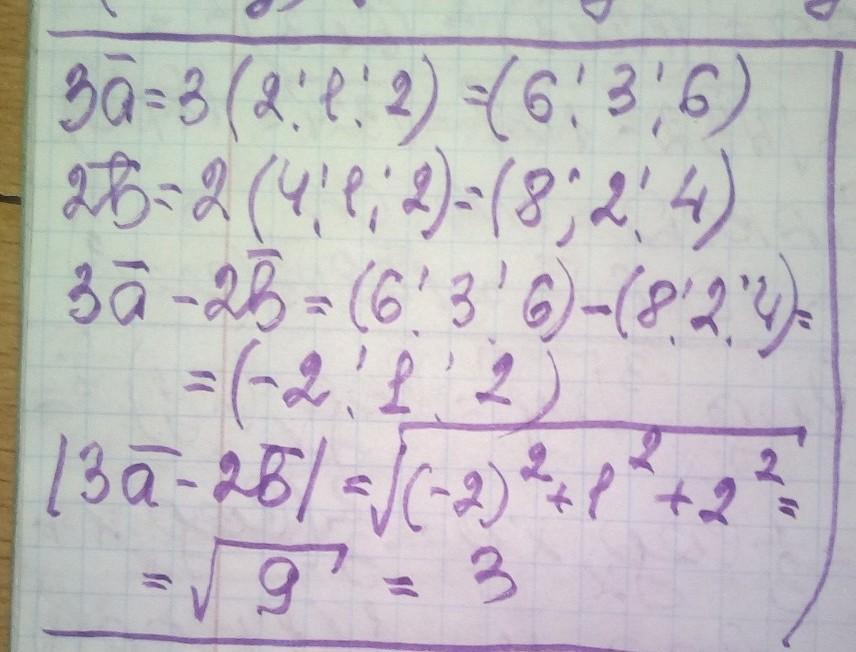 3a̅ = 3 (2; 1; 2) = (6; 3; 6)
2b̅ = 2 (4; 1; 2) = (8; 2; 4)
3a̅ - 2b̅ = (6; 3; 6) - (8; 2; 4) =
= (-2; 1; 2)
|3a̅ - 2b̅| = √((-2)² + 1² + 2²) =
= √9 = 3